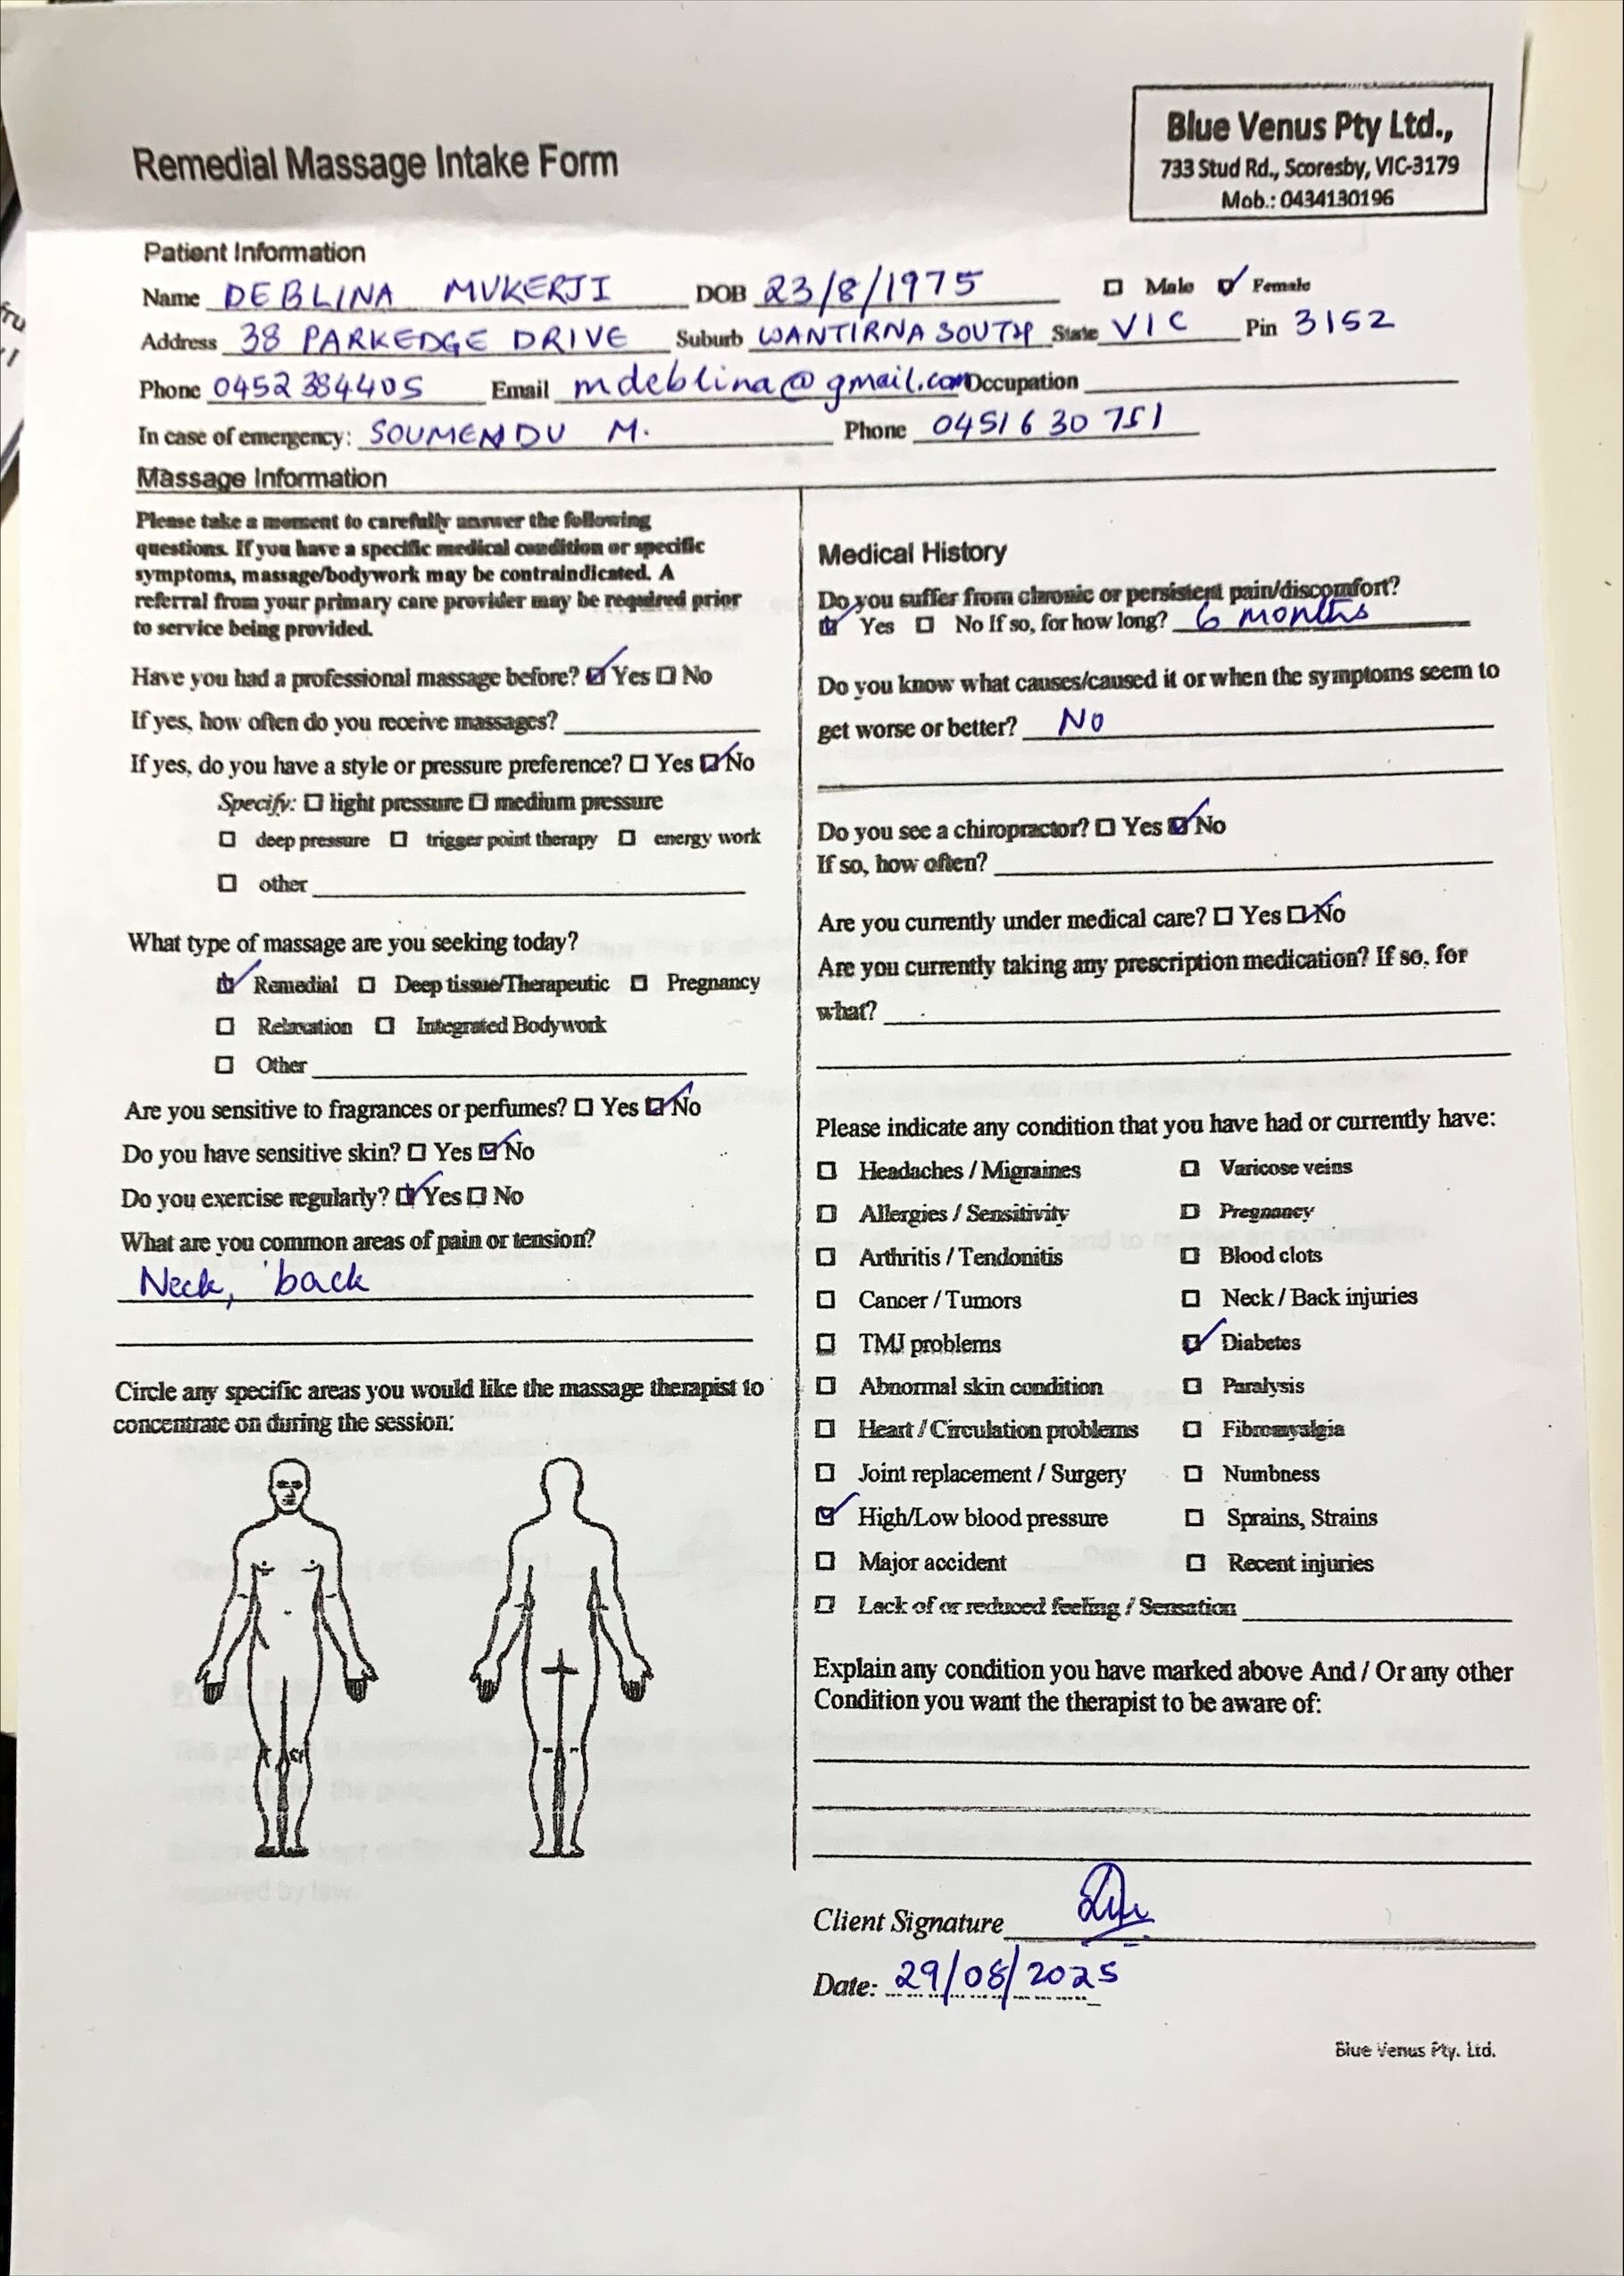 Remedial Massage Intake Form
Blue Venus Pty Ltd.,
733 Stud Rd., Scoresby, VIC-3179
Mob.: 0434130196
Patient Information
Name DEBLINA MUKERJI DOB 23/8/1975 Male Female
Address 38 PARKEDGE DRIVE Suburb WANTIRNA SOUTH State VIC Pin 3152
Phone 0452384405 Email mdeblina@gmail.com Occupation
In case of emergency: SOUMENDU M. Phone 0451630751
Massage Information
Please take a moment to carefully answer the following
questions. If you have a specific medical condition or specific
symptoms, massage/bodywork may be contraindicated. A
referral from your primary care provider may be required prior
to service being provided.
Have you had a professional massage before? Yes No
If yes, how often do you receive massages?
If yes, do you have a style or pressure preference? Yes No
Specify: light pressure medium pressure
deep pressure trigger point therapy energy work
other
What type of massage are you seeking today?
Remedial Deep tissue/Therapeutic Pregnancy
Relaxation Integrated Bodywork
Other
Are you sensitive to fragrances or perfumes? Yes No
Do you have sensitive skin? Yes No
Do you exercise regularly? Yes No
What are you common areas of pain or tension?
Neck, back
Circle any specific areas you would like the massage therapist to
concentrate on during the session:
Medical History
Do you suffer from chronic or persistent pain/discomfort?
Yes No If so, for how long? 6 months
Do you know what causes/caused it or when the symptoms seem to
get worse or better? No
Do you see a chiropractor? Yes No
If so, how often?
Are you currently under medical care? Yes No
Are you currently taking any prescription medication? If so, for
what?
Please indicate any condition that you have had or currently have:
Headaches / Migraines Varicose veins
Allergies / Sensitivity Pregnancy
Arthritis / Tendonitis Blood clots
Cancer / Tumors Neck / Back injuries
TMJ problems Diabetes
Abnormal skin condition Paralysis
Heart / Circulation problems Fibromyalgia
Joint replacement / Surgery Numbness
High/Low blood pressure Sprains, Strains
Major accident Recent injuries
Lack of or reduced feeling / Sensation
Explain any condition you have marked above And / Or any other
Condition you want the therapist to be aware of:
Client Signature
Date: 29/08/2025
Blue Venus Pty. Ltd.